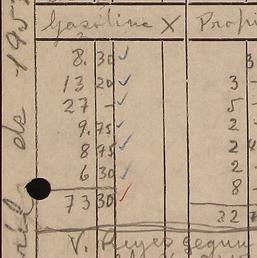 de 195
Gasolina X Propi
8.30 ✓ 3
13 20 ✓ 3 -
27 - ✓ 5 -
9.75 ✓ 2 -
8 75 ✓ 2
6 30 ✓ 2 -
8 -
73 30 ✓ 22
V. Reyes